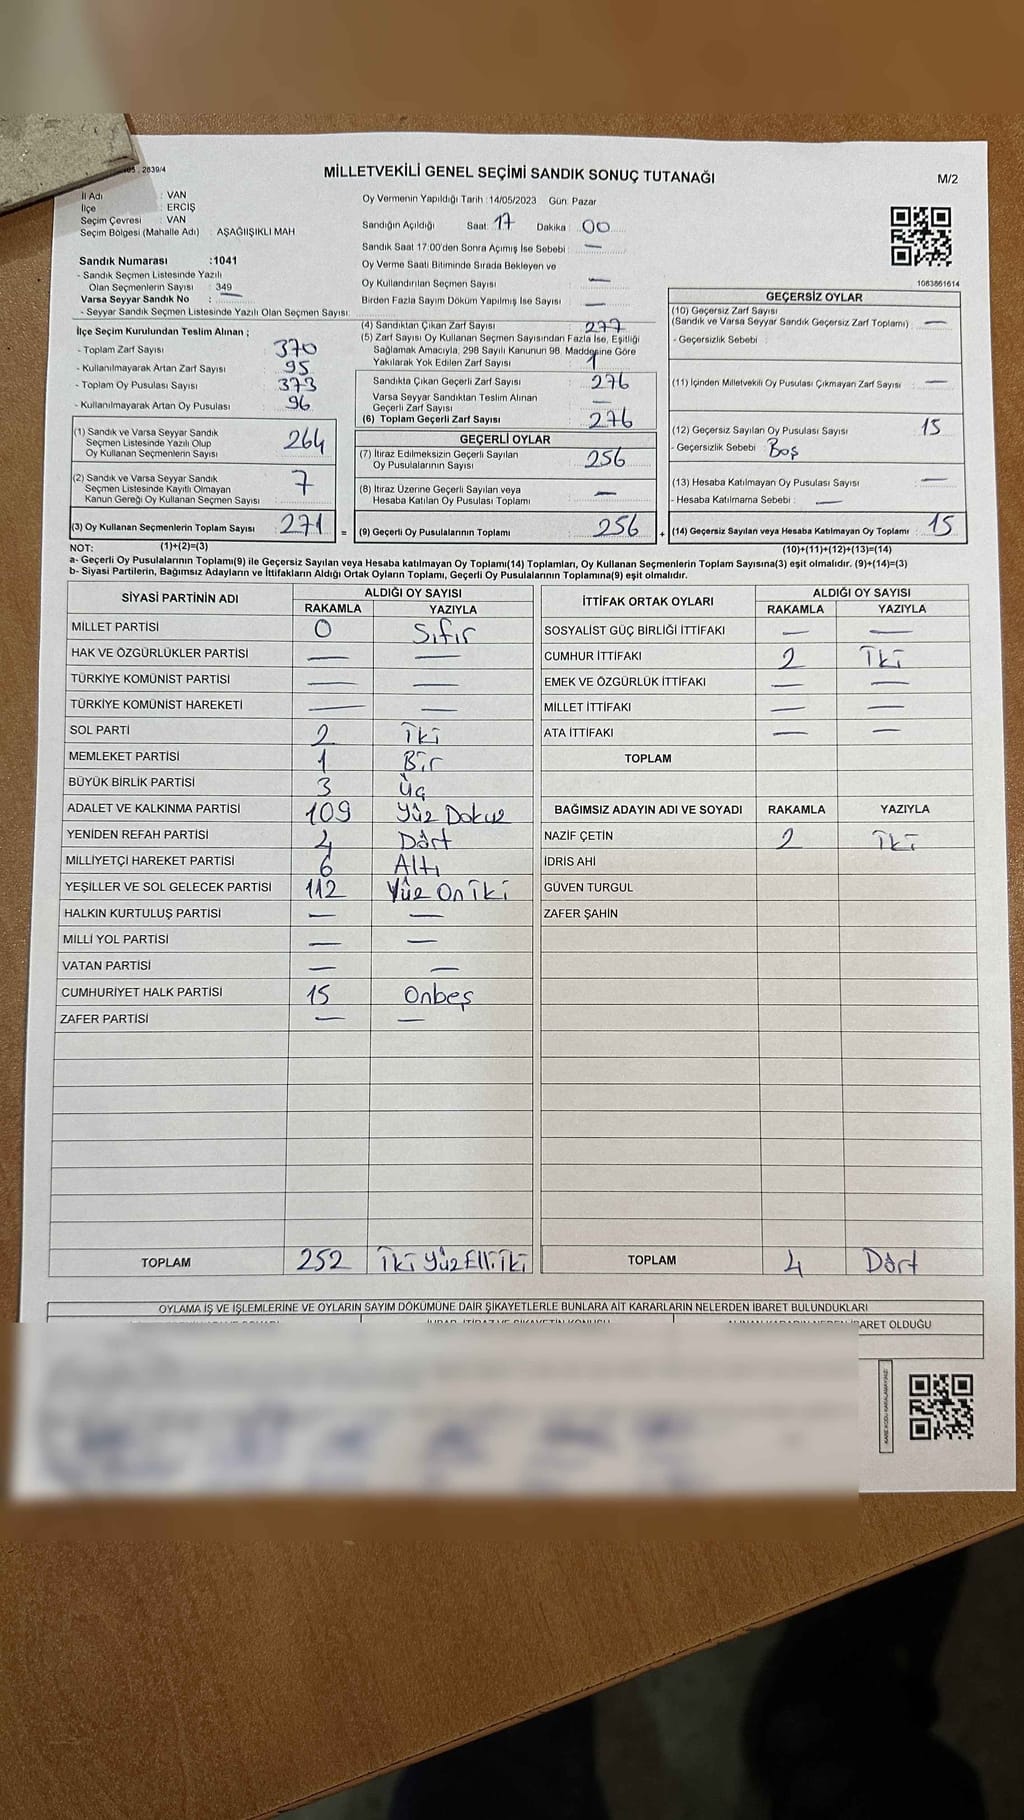 2839/4
MİLLETVEKİLİ GENEL SEÇİMİ SANDIK SONUÇ TUTANAĞI
M/2
İl Adı : VAN
İlçe : ERCİŞ
Seçim Çevresi : VAN
Seçim Bölgesi (Mahalle Adı) : AŞAĞIIŞIKLI MAH
Sandık Numarası :1041
- Sandık Seçmen Listesinde Yazılı
Olan Seçmenlerin Sayısı : 349
Varsa Seyyar Sandık No : —
- Seyyar Sandık Seçmen Listesinde Yazılı Olan Seçmen Sayısı
Oy Vermenin Yapıldığı Tarih : 14/05/2023 Gün: Pazar
Sandığın Açıldığı Saat: 17 Dakika : 00
Sandık Saat 17:00'den Sonra Açımış İse Sebebi : —
Oy Verme Saati Bitiminde Sırada Bekleyen ve
Oy Kullandırılan Seçmen Sayısı : —
Birden Fazla Sayım Döküm Yapılmış İse Sayısı : —
1083861614
İlçe Seçim Kurulundan Teslim Alınan ;
- Toplam Zarf Sayısı : 370
- Kullanılmayarak Artan Zarf Sayısı : 95
- Toplam Oy Pusulası Sayısı : 373
- Kullanılmayarak Artan Oy Pusulası : 96
(1) Sandık ve Varsa Seyyar Sandık
Seçmen Listesinde Yazılı Olup
Oy Kullanan Seçmenlerin Sayısı : 264
(2) Sandık ve Varsa Seyyar Sandık
Seçmen Listesinde Kayıtlı Olmayan
Kanun Gereği Oy Kullanan Seçmen Sayısı : 7
(3) Oy Kullanan Seçmenlerin Toplam Sayısı : 271 =
(4) Sandıktan Çıkan Zarf Sayısı : 277
(5) Zarf Sayısı Oy Kullanan Seçmen Sayısından Fazla İse, Eşitliği
Sağlamak Amacıyla, 298 Sayılı Kanunun 98. Maddesine Göre
Yakılarak Yok Edilen Zarf Sayısı : 1
Sandıkta Çıkan Geçerli Zarf Sayısı : 276
Varsa Seyyar Sandıktan Teslim Alınan
Geçerli Zarf Sayısı : —
(6) Toplam Geçerli Zarf Sayısı : 276
GEÇERLİ OYLAR
(7) İtiraz Edilmeksizin Geçerli Sayılan
Oy Pusulalarının Sayısı : 256
(8) İtiraz Üzerine Geçerli Sayılan veya
Hesaba Katılan Oy Pusulası Toplamı : —
(9) Geçerli Oy Pusulalarının Toplamı : 256 +
GEÇERSİZ OYLAR
(10) Geçersiz Zarf Sayısı
(Sandık ve Varsa Seyyar Sandık Geçersiz Zarf Toplamı) : —
- Geçersizlik Sebebi :
(11) İçinden Milletvekili Oy Pusulası Çıkmayan Zarf Sayısı : —
(12) Geçersiz Sayılan Oy Pusulası Sayısı : 15
- Geçersizlik Sebebi : Boş
(13) Hesaba Katılmayan Oy Pusulası Sayısı : —
- Hesaba Katılmama Sebebi : —
(14) Geçersiz Sayılan veya Hesaba Katılmayan Oy Toplamı : 15
NOT: (1)+(2)=(3) (10)+(11)+(12)+(13)=(14)
a- Geçerli Oy Pusulalarının Toplamı(9) ile Geçersiz Sayılan veya Hesaba katılmayan Oy Toplamı(14) Toplamları, Oy Kullanan Seçmenlerin Toplam Sayısına(3) eşit olmalıdır. (9)+(14)=(3)
b- Siyasi Partilerin, Bağımsız Adayların ve İttifakların Aldığı Ortak Oyların Toplamı, Geçerli Oy Pusulalarının Toplamına(9) eşit olmalıdır.
SİYASİ PARTİNİN ADI ALDIĞI OY SAYISI
RAKAMLA YAZIYLA
MİLLET PARTİSİ 0 Sıfır
HAK VE ÖZGÜRLÜKLER PARTİSİ — —
TÜRKİYE KOMÜNİST PARTİSİ — —
TÜRKİYE KOMÜNİST HAREKETİ — —
SOL PARTİ 2 İki
MEMLEKET PARTİSİ 1 Bir
BÜYÜK BİRLİK PARTİSİ 3 Üç
ADALET VE KALKINMA PARTİSİ 109 Yüz Dokuz
YENİDEN REFAH PARTİSİ 4 Dört
MİLLİYETÇİ HAREKET PARTİSİ 6 Altı
YEŞİLLER VE SOL GELECEK PARTİSİ 112 Yüz On İki
HALKIN KURTULUŞ PARTİSİ — —
MİLLİ YOL PARTİSİ — —
VATAN PARTİSİ — —
CUMHURİYET HALK PARTİSİ 15 Onbeş
ZAFER PARTİSİ — —
TOPLAM 252 İki Yüz Elli İki
İTTİFAK ORTAK OYLARI ALDIĞI OY SAYISI
RAKAMLA YAZIYLA
SOSYALİST GÜÇ BİRLİĞİ İTTİFAKI — —
CUMHUR İTTİFAKI 2 İki
EMEK VE ÖZGÜRLÜK İTTİFAKI — —
MİLLET İTTİFAKI — —
ATA İTTİFAKI — —
TOPLAM
BAĞIMSIZ ADAYIN ADI VE SOYADI RAKAMLA YAZIYLA
NAZİF ÇETİN 2 İki
İDRİS AHİ
GÜVEN TURGUL
ZAFER ŞAHİN
TOPLAM 4 Dört
OYLAMA İŞ VE İŞLEMLERİNE VE OYLARIN SAYIM DÖKÜMÜNE DAİR ŞİKAYETLERLE BUNLARA AİT KARARLARIN NELERDEN İBARET BULUNDUKLARI
İBARET OLDUĞU
KARE KODU KARALAMAYINIZ